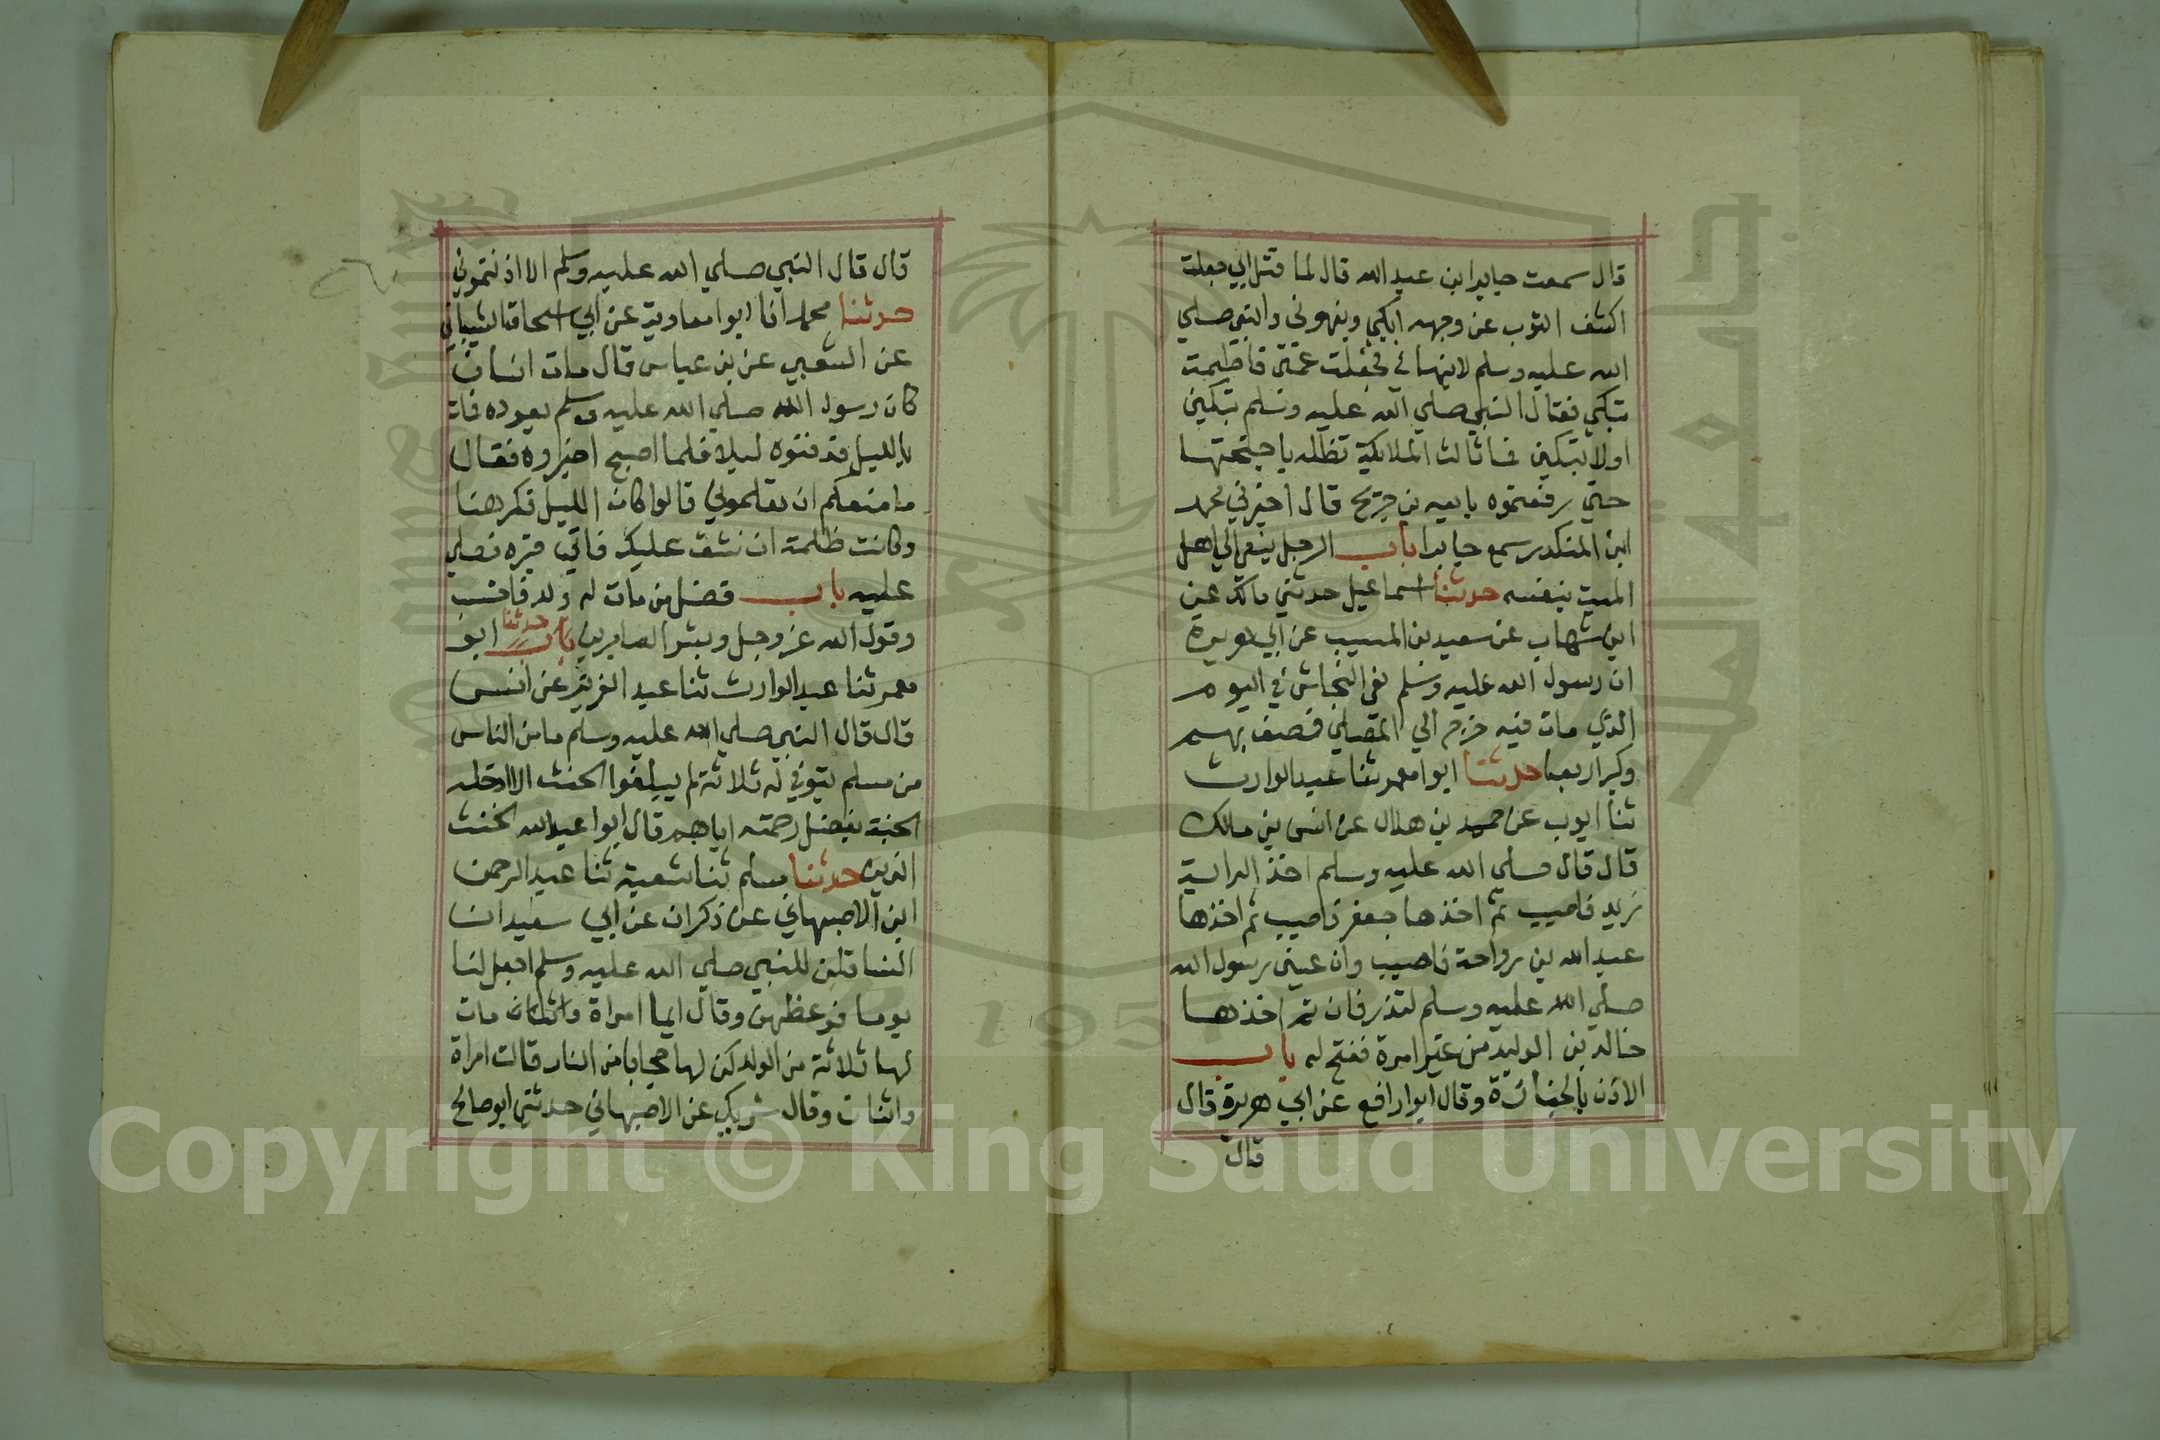 قال سمعت جابر ابن عبد الله قال لما قتل ابي جعلت
اكشف الثوب عن وجهه ابكي وينهوني والنبي صلي
الله عليه وسلم لا ينهاني فجعلت عمتي فاطمت
تبكي فقال النبي صلي الله عليه وسلم تبكين
او لا تبكين فما زالت الملايكة تظله باجنحتها
حتي رفعتموه تابعه بن جريح قال اخبرني محمد
ابن المنكدر سمع جابرا باب الرجل ينعي الي اهل
الميت بنفسه حدثنا اسماعيل حدثني مالك عن
ابن شهاب عن سعيد بن المسيب عن ابي هريرة
ان رسول الله عليه وسلم نعي النجاشي في اليوم
الذي مات فيه خرج الي المصلي فصف بهم
وكبر اربعا حدثنا ابوا معمر ثنا عبد الوارث
ثنا ايوب عن حميد بن هلال عن انس بن مالك
قال قال صلي الله عليه وسلم اخذ الراية
زيد فاصيب ثم اخذها جعفر فاصيب ثم اخذها
عبد الله بن رواحة فاصيب وان عيني رسول الله
صلي الله عليه وسلم لتذرفان ثم اخذها
خالد بن الوليد من غير امرة ففتح له باب
الاذن بالجنازة وقال ابوا رافع عن ابي هريرة قال
قال
قال قال النبي صلي الله عليه وسلم الا اذنتموني
حدثنا محمد انا ابوا معاوية عن ابي اسحاق الشيباني
عن الشعبي عن بن عباس قال مات انسان
كان رسول الله صلي الله عليه وسلم يعوده فمات
بالليل فدفنوه ليلا فلما اصبح اخبروه فقال
ما منعكم ان تعلموني قالوا كان الليل فكرهنا
وكانت ظلمة ان نشق عليك فاتي قبره فصلي
عليه باب فضل من مات له ولد فاحتسب
وقول الله عز وجل وبشر الصابرين باب حدثنا ابو
معمر ثنا عبد الوارث ثنا عبد العزيز عن انس
قال قال النبي صلي الله عليه وسلم ما من الناس
من مسلم يتوفي له ثلاثة لم يبلغوا الحنث الا ادخله
الجنة بفضل رحمته اياهم قال ابوا عبد الله الحنث
الذين حدثنا مسلم ثنا شعبة ثنا عبد الرحمن
ابن الاصبهاني عن ذكران عن ابي سعيد ان
النسا قلن للنبي صلي الله عليه وسلم اجعل لنا
يوما فوعظهن وقال ايما امراة مات
لها ثلاثة من الولد كن لها حجابا من النار قالت امراة
واثنان وقال شريك عن الاصبهاني حدثني ابو صالح
Copyright © King Saud University
1957